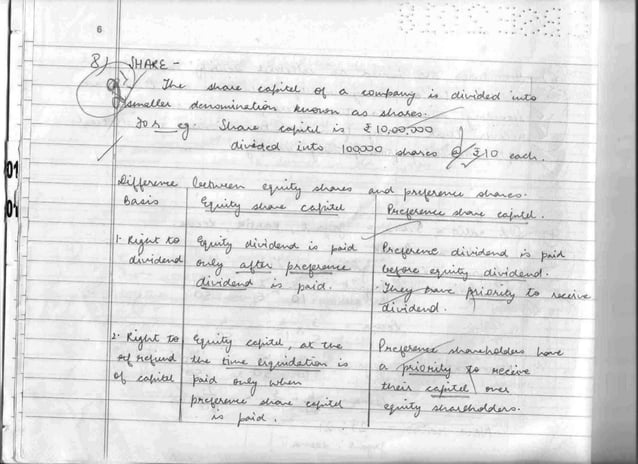 6
8) SHARE -
The share capital of a company is divided into
smaller denomination known as shares.
For eg. Share capital is ₹ 10,00,000
divided into 100000 shares @ ₹10 each.
Difference between equity shares and preference shares.
Basis Equity share capital Preference share capital.
1. Right to Equity dividend is paid Preference dividend is paid
dividend only after preference before equity dividend.
dividend is paid. They have priority to receive
dividend.
2. Right to Equity capital, at the Preference shareholders have
of refund the time liquidation is a priority to receive
of capital paid only when their capital over
preference share capital equity shareholders.
is paid.